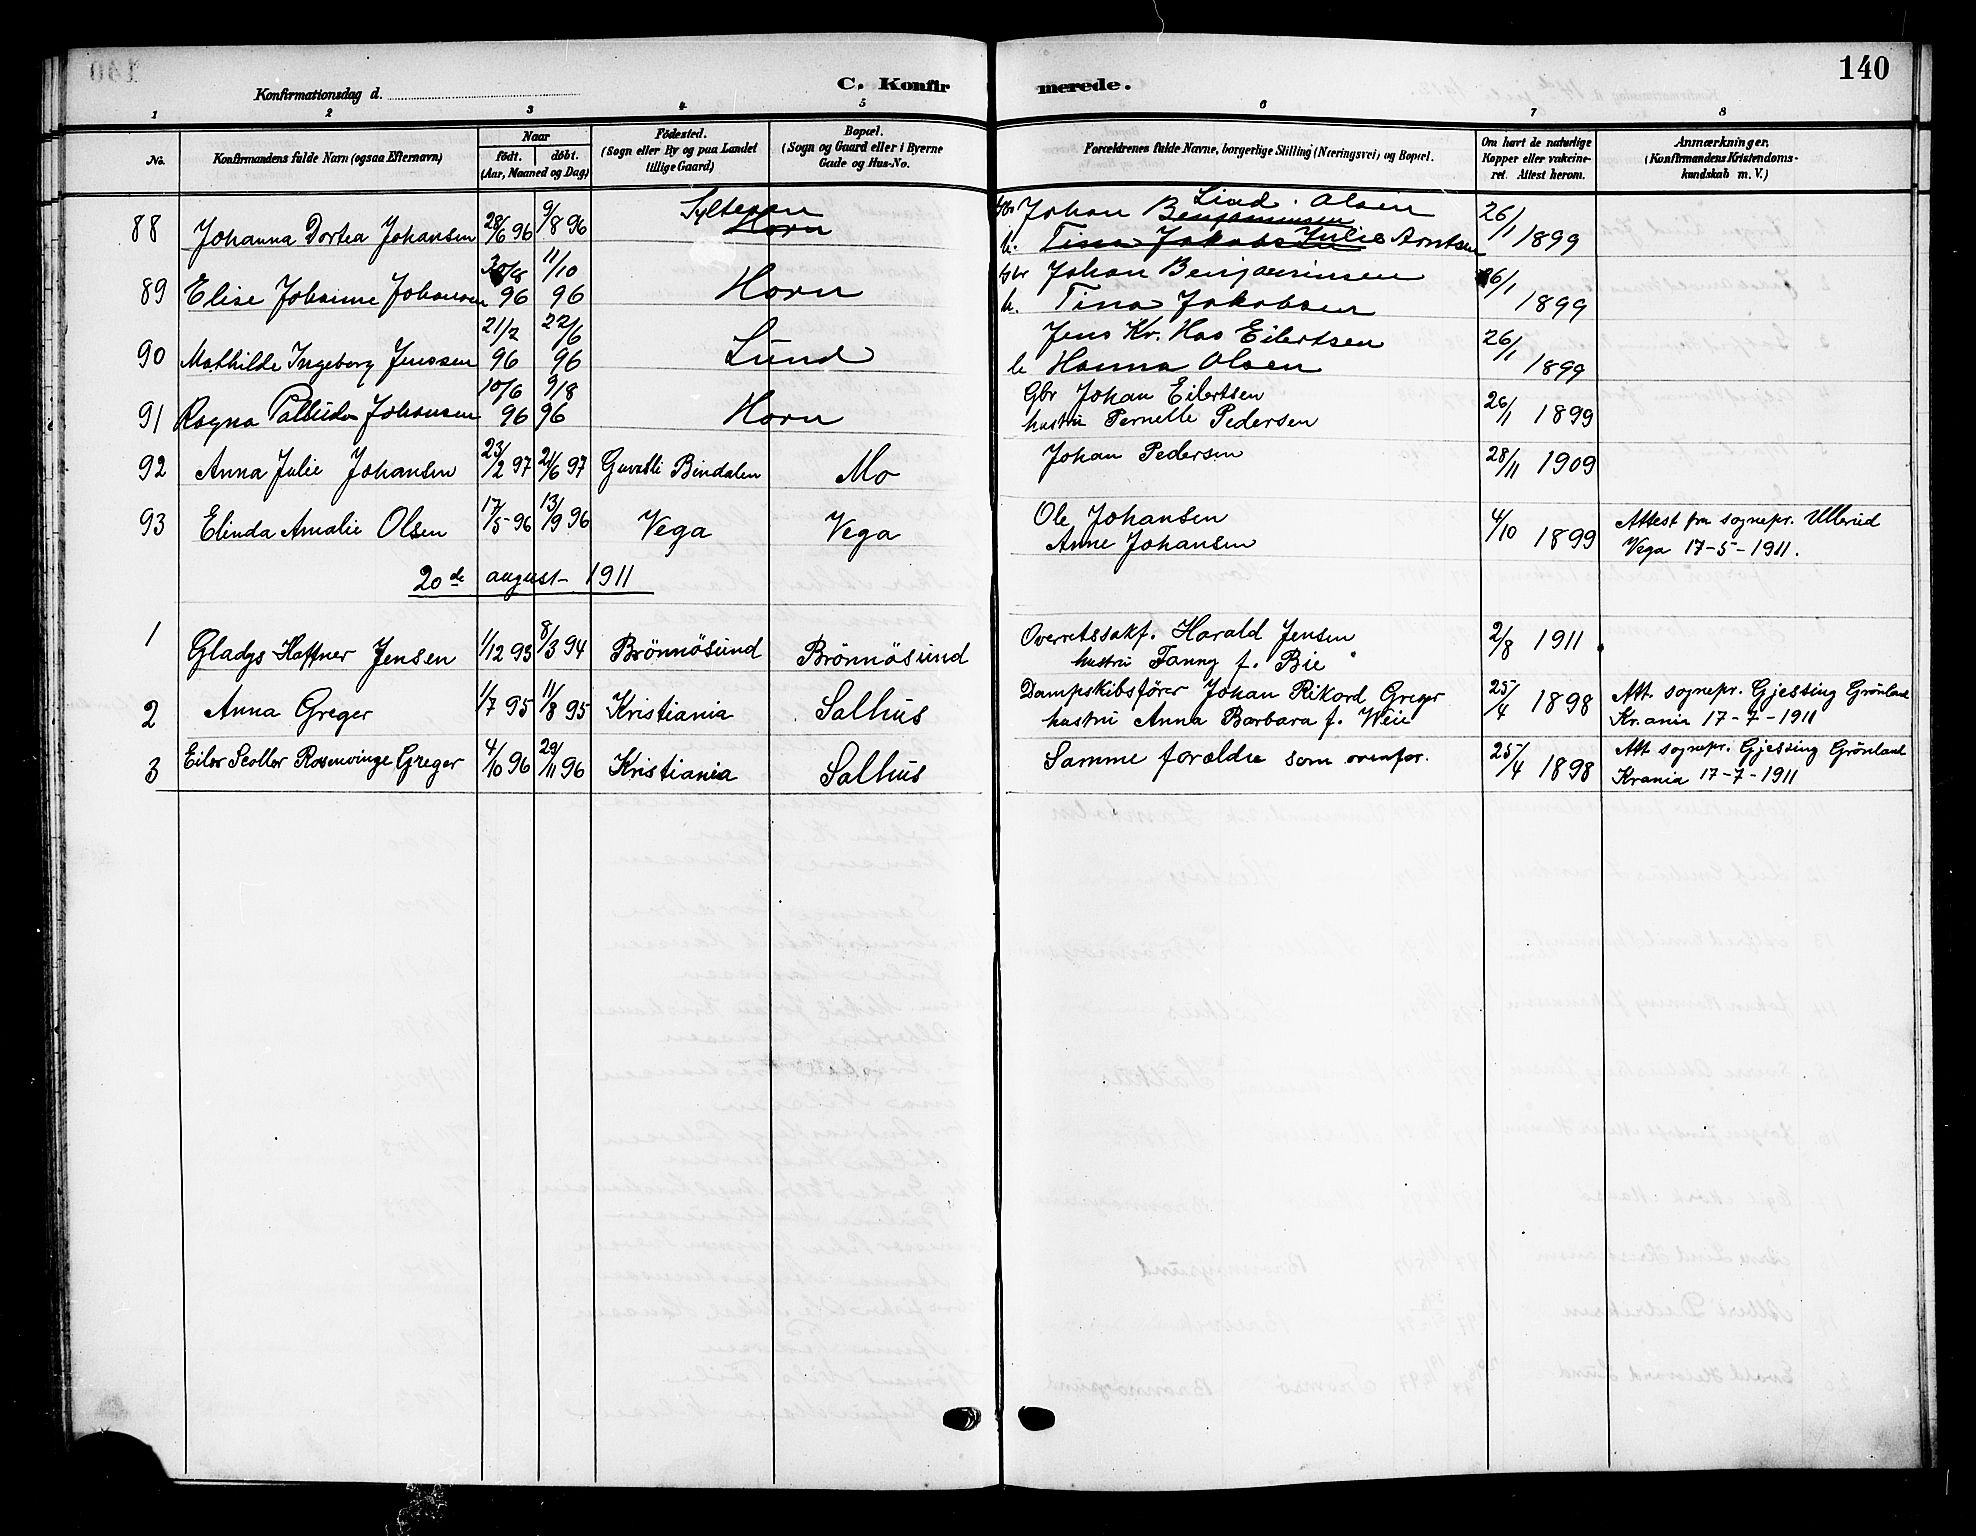 140
C. Konfirmerede.
Konfirmationsdag d.
1 2 3 4 5 6 7 8
No. Konfirmandens fulde Navn (ogsaa Efternavn) Naar født. døbt. (Aar, Maaned og Dag) Födested. (Sogn eller By og paa Landet tillige Gaard) Bopæl. (Sogn og Gaard eller i Byerne Gade og Hus-No. Forældrenes fulde Navne, borgerlige Stilling (Næringsvei) og Bopæl. Om havt de naturlige Kopper eller vakcineret. Attest herom. Anmærkninger. (Konfirmandens Kristendomskundskab m. V.)
88 Johanna Dortea Johansen 28/6 96 9/8 96 Horn Johan Benjaminsen Lind. Olsen 26/1 1899
h. Tina Jakobs Julie Arntsen
89 Elise Johanne Johansen 96 11/10 96 Horn Gbr Johan Benjaminsen 26/1 1899
h. Tina Jakobsen
90 Mathilde Ingeborg Jenssen 21/2 96 22/6 96 Lund Jens Kr. Has Eilertsen 26/1 1899
h Hanna Olsen
91 Ragna Johansen 10/6 96 9/8 96 Horn Gbr Johan Eilertsen 26/1 1899
hustru Pernelle Pedersen
92 Anna Julie Johansen 23/2 97 21/6 97 Bindalen Mo Johan Pedersen 28/11 1909
93 Elinda Amalie Olsen 17/5 96 13/9 96 Vega Vega Ole Johansen 4/10 1899 Attest fra sognepr. Ullerud
Anne Johansen Vega 17-5-1911.
20de august 1911
1 Gladys Haffner Jensen 1/12 93 8/3 94 Brönnösund Brönnösund Overretssakf. Harald Jensen 2/8 1911
hustru Fanny f. Bie
2 Anna Greger 1/7 95 11/8 95 Kristiania Salhus Dampskibsförer Johan Rikord Greger 25/4 1898 Att. sognepr. Gjessing Grønland
hustru Anna Barbara f. Weie Kr.ania 17-7-1911
3 Eiler Scoller Rosenvinge Greger 4/10 96 29/11 96 Kristiania Salhus Samme forældre som ovenfor. 25/4 1898 Att sognepr. Gjessing Grønland
Krania 17-7-1911